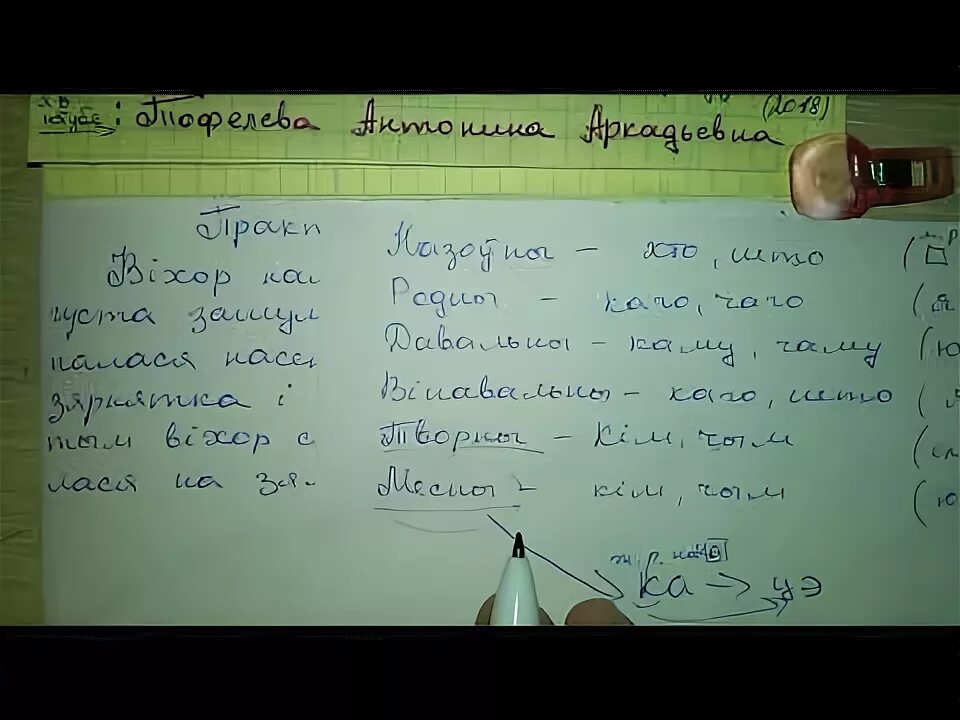 : Тофелева Антонина Аркадьевна (2018)
Практ
Віхор кап
пуста зашум
палася насен
зярнятка і
тым віхор с
лася на зя
Назоўны – хто, што
Родны – каго, чаго
Давальны – каму, чаму
Вінавальны – каго, што
Творны – кім, чым
Месны – кім, чым
ж. р. на а
ка → цэ